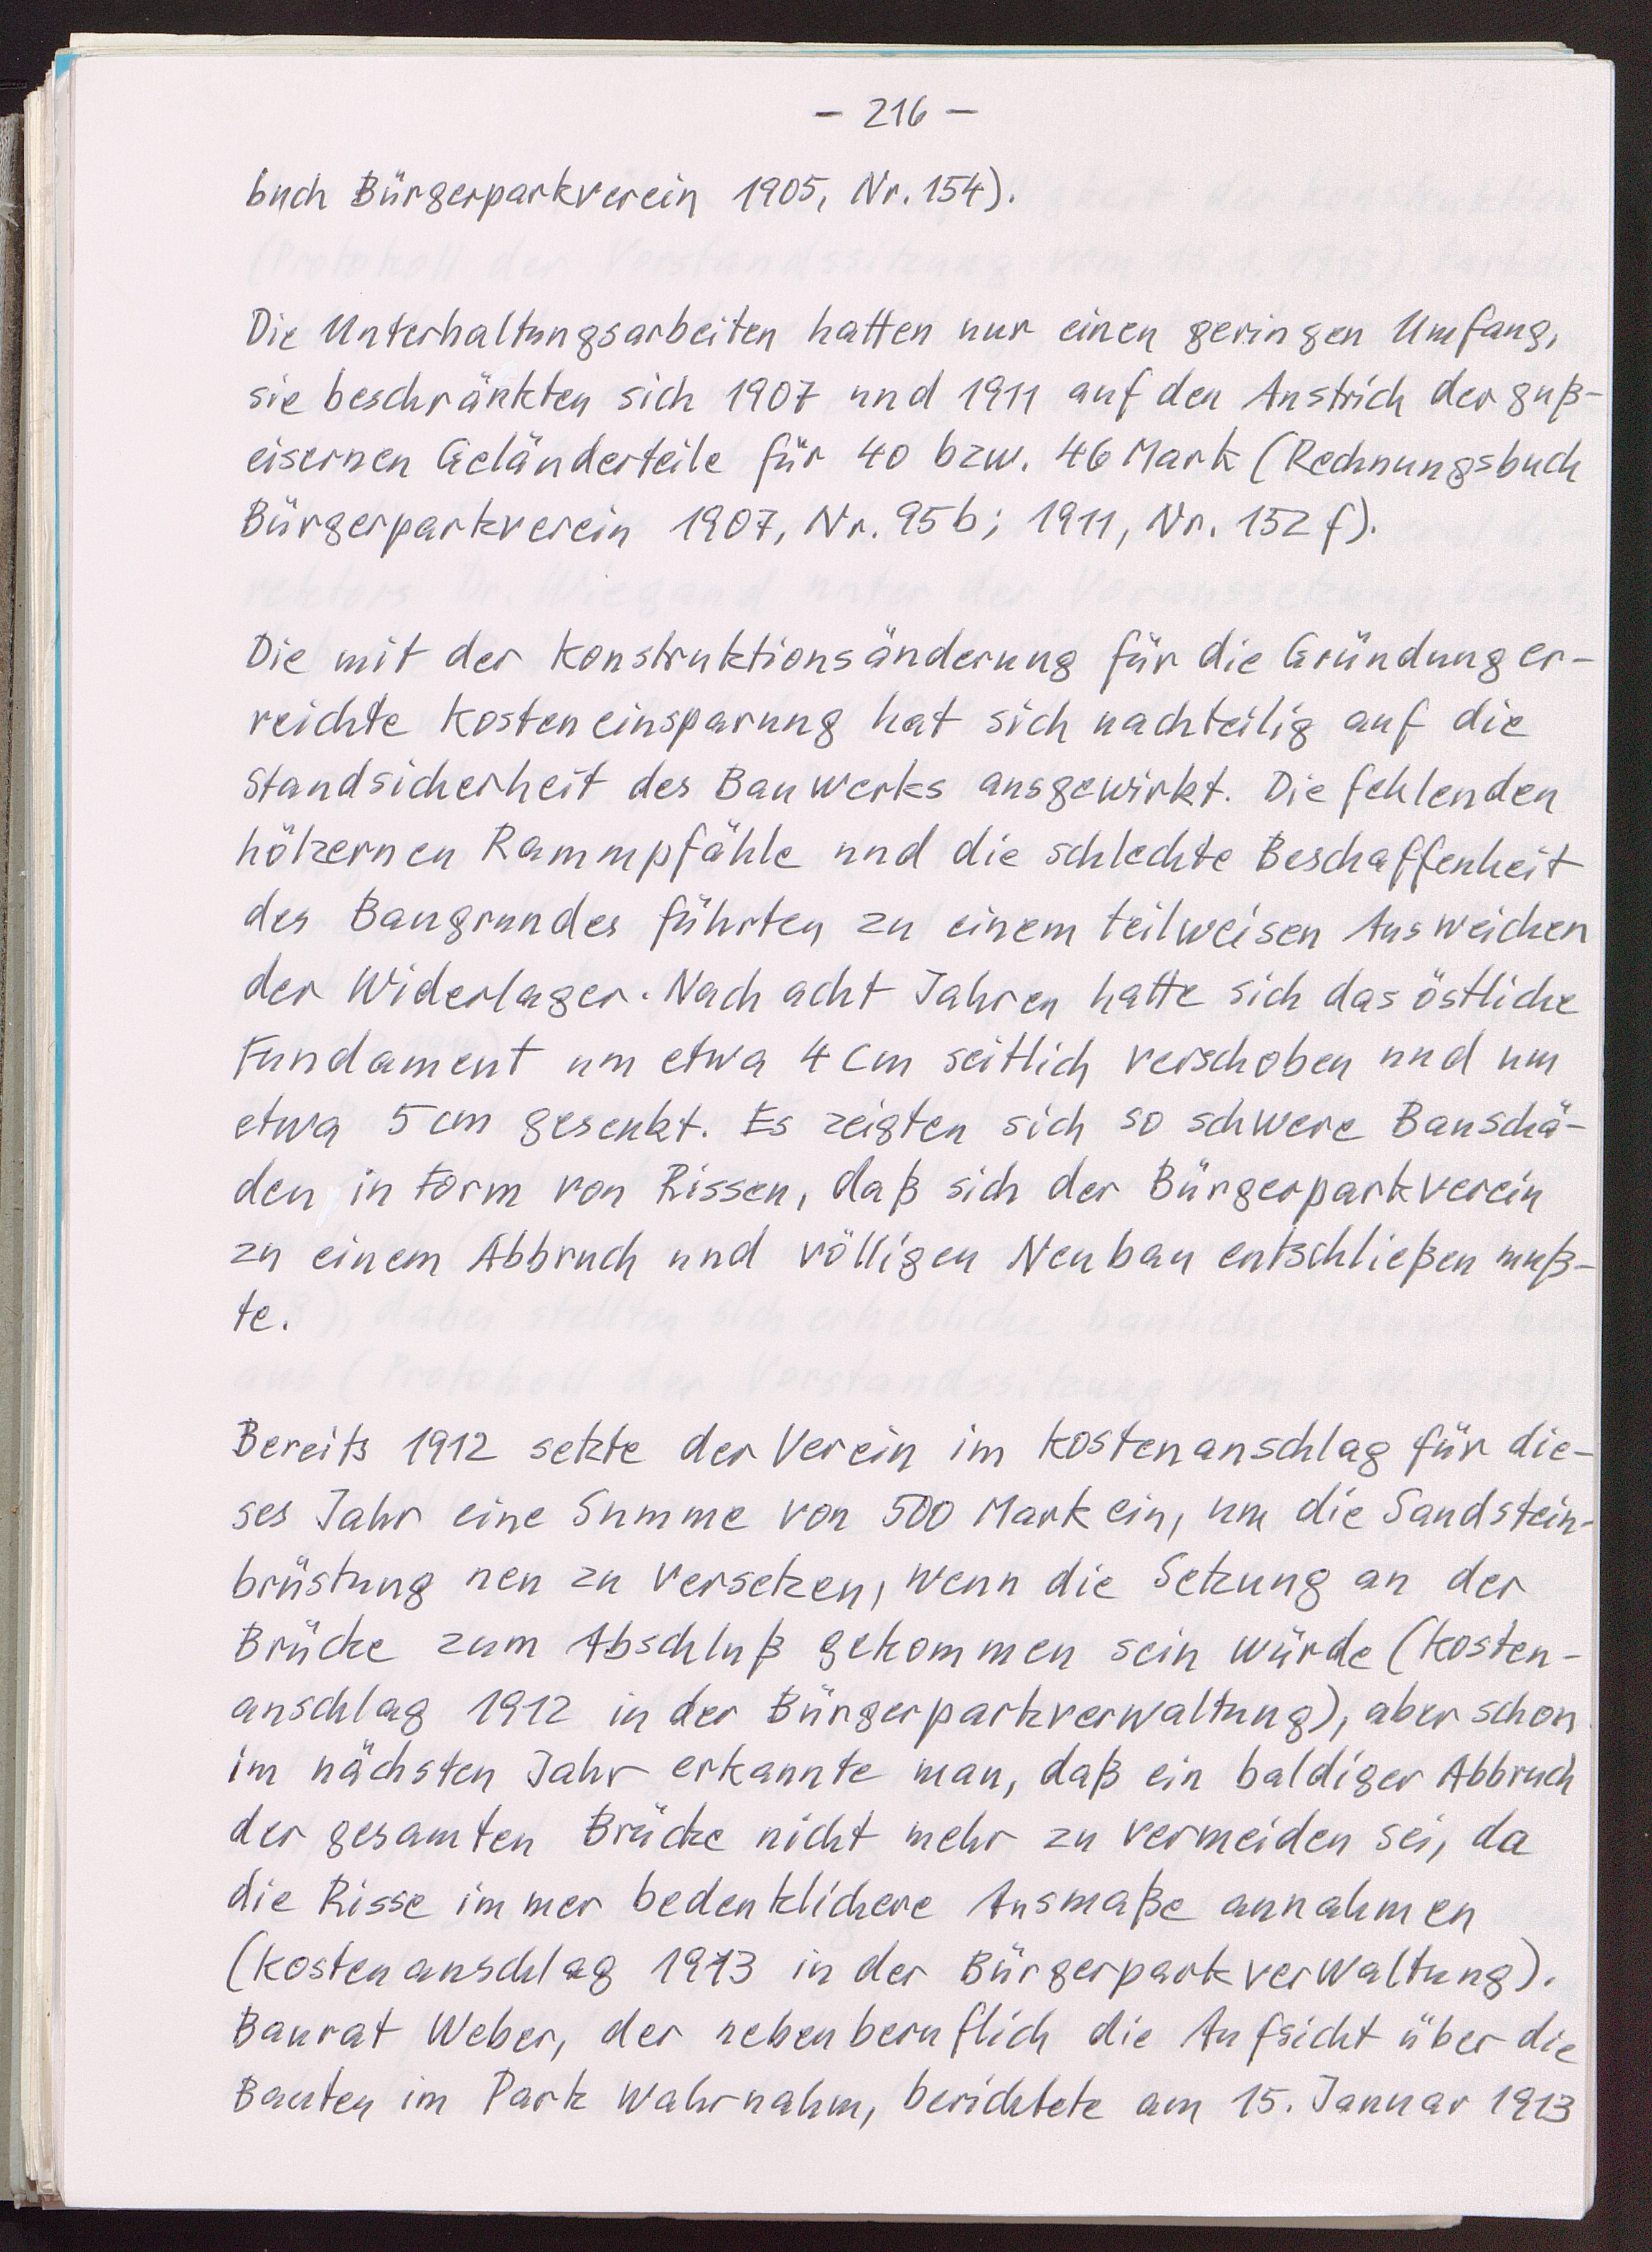 - 216 -
buch Bürgerparkverein 1905, Nr. 154).
Die Unterhaltungsarbeiten hatten nur einen geringen Umfang,
sie beschränkten sich 1907 und 1911 auf den Anstrich der guß-
eisernen Geländerteile für 40 bzw. 46 Mark (Rechnungsbuch
Bürgerparkverein 1907, Nr. 95b; 1911, Nr. 152 f).
Die mit der Konstruktionsänderung für die Gründung er-
reichte Kosteneinsparung hat sich nachteilig auf die
Standsicherheit des Bauwerks ausgewirkt. Die fehlenden
hölzernen Rammpfähle und die schlechte Beschaffenheit
des Baugrundes führten zu einem teilweisen Ausweichen
der Widerlager. Nach acht Jahren hatte sich das östliche
Fundament um etwa 4 cm seitlich verschoben und um
etwa 5 cm gesenkt. Es zeigten sich so schwere Bauschä-
den in Form von Rissen, daß sich der Bürgerparkverein
zu einem Abbruch und völligen Neubau entschließen muß-
te.
Bereits 1912 setzte der Verein im Kostenanschlag für die-
ses Jahr eine Summe von 500 Mark ein, um die Sandstein-
brüstung neu zu versetzen, wenn die Setzung an der
Brücke zum Abschluß gekommen sein würde (Kosten-
anschlag 1912 in der Bürgerparkverwaltung), aber schon
im nächsten Jahr erkannte man, daß ein baldiger Abbruch
der gesamten Brücke nicht mehr zu vermeiden sei, da
die Risse immer bedenklichere Ausmaße annahmen
(Kostenanschlag 1913 in der Bürgerparkverwaltung).
Baurat Weber, der nebenberuflich die Aufsicht über die
Bauten im Park wahrnahm, berichtete am 15. Januar 1913